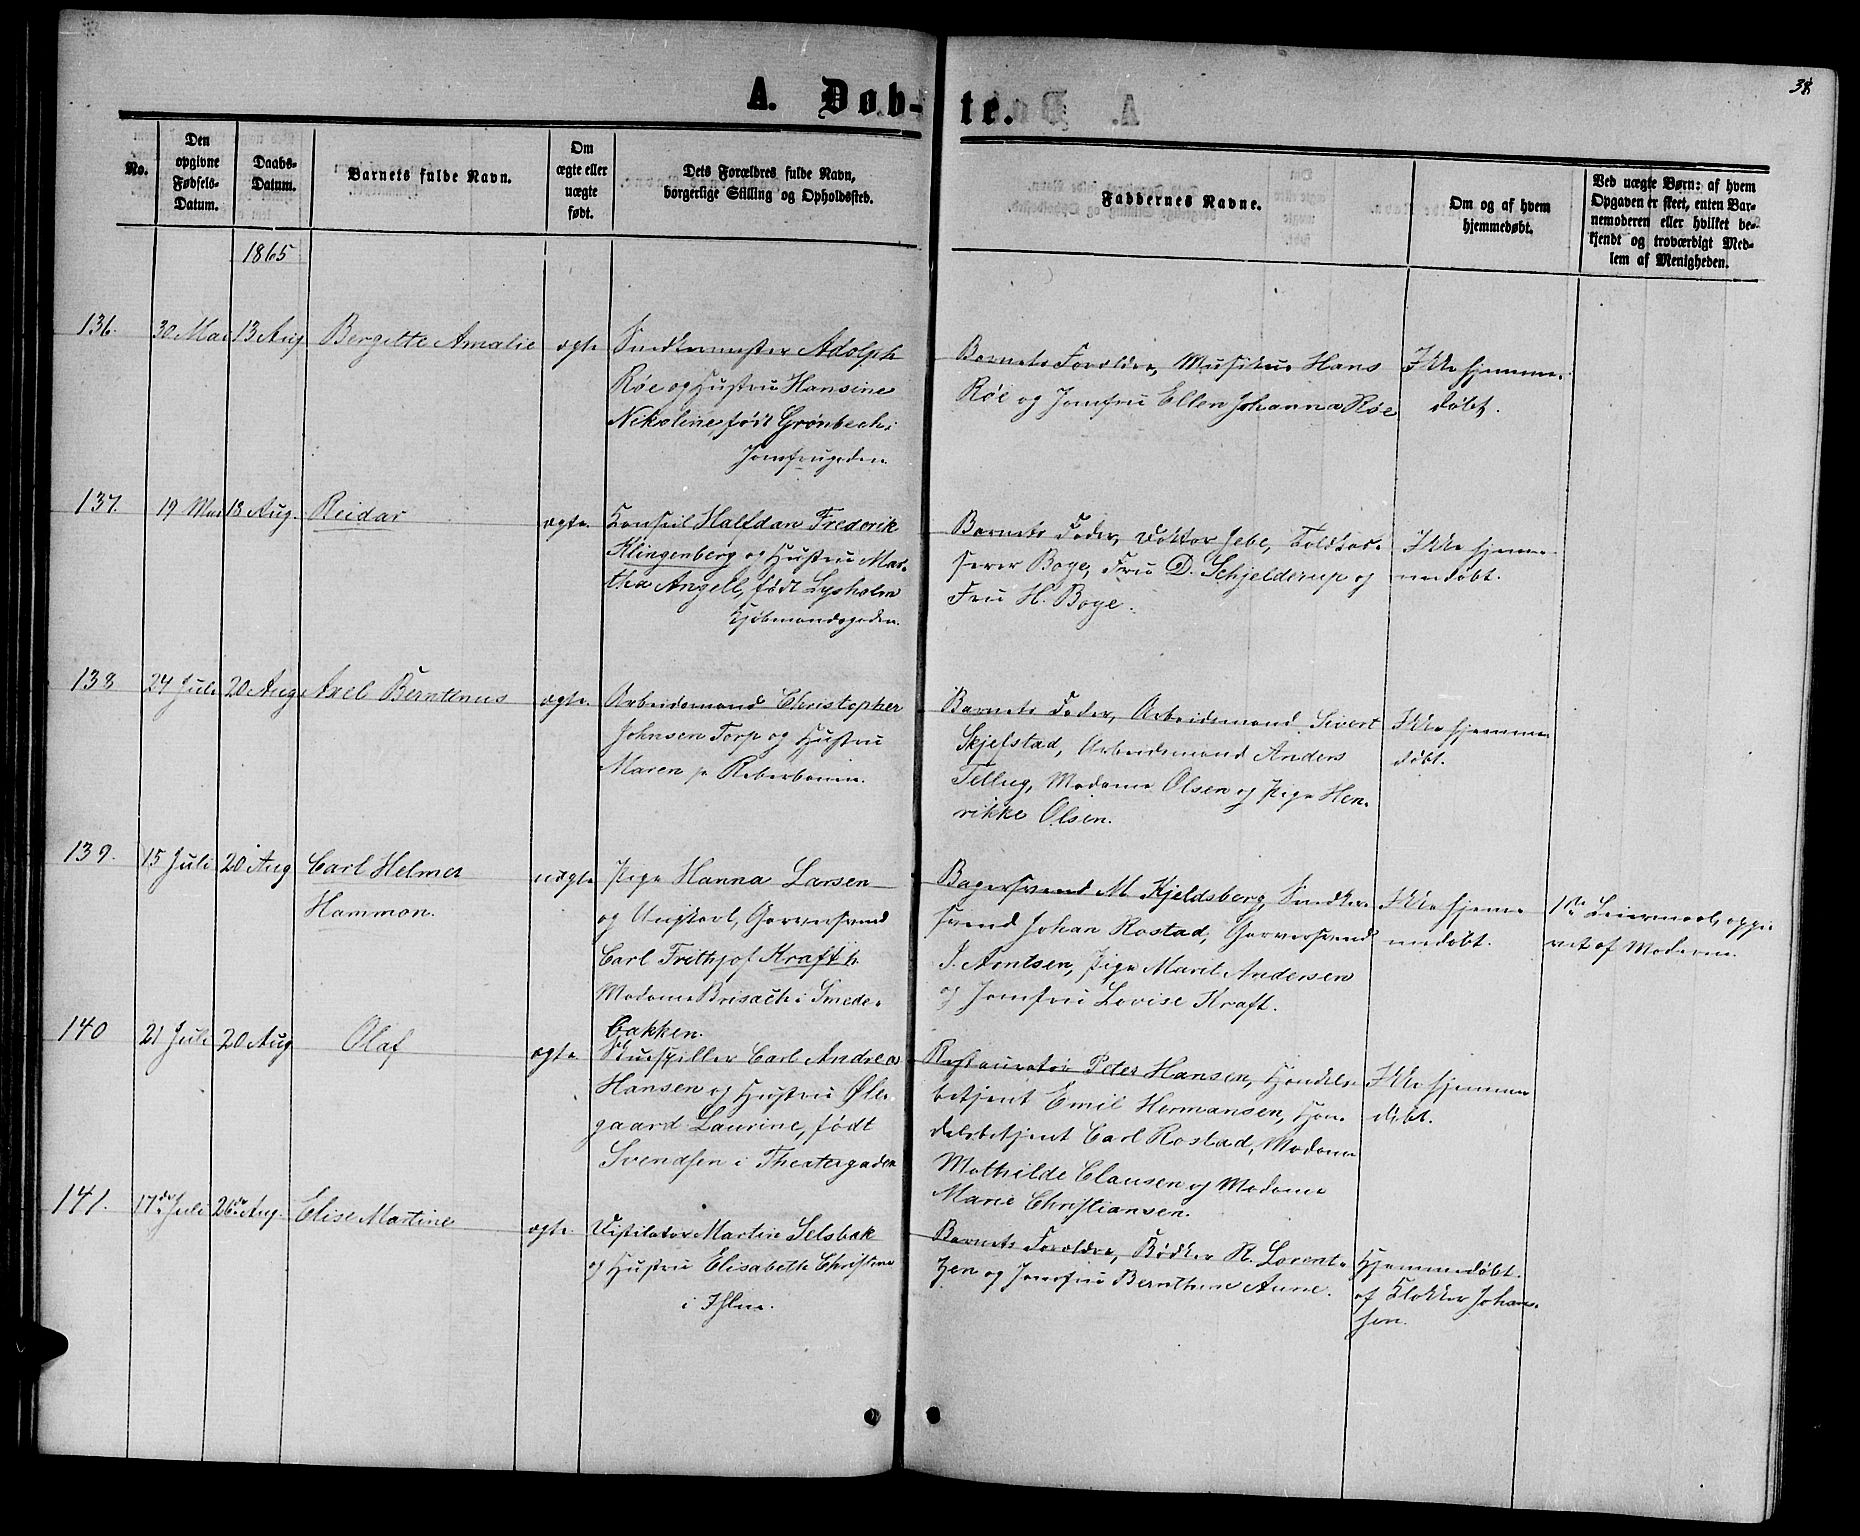 38
A. Døb-te.
No.
Den
opgivne
Fødsels-
Datum.
Daabs-
Datum.
Barnets fulde Navn.
Om
ægte eller
uægte
født.
Dets Forældres fulde Navn,
borgerlige Stilling og Opholdssted.
Faddernes Navne.
Om og af hvem
hjemmedøbt.
Ved uægte Børn: af hvem
Opgaven er skeet, enten Bar-
nemoderen eller hvilket be-
kjendt og troværdigt Med-
lem af Menigheden.
1865
136.
30 Mai
13 Aug
Bergitte Amalie
ægte
Snedkermester Adolph
Röe og Hustru Hansine
Nikoline, født Grønbech i
Jomfrugaden.
Barnets Forældre, Musikus Hans
Röe og Jomfru Ellen Johanna Röe
Ikke hjemme-
døbt.
137.
19 Mai
13 Aug.
Reidar
ægte.
Konsul Halfdan Frederik
Klingenberg og Hustru Mar-
tha Angell, født Lysholm
Kjøbmandsgaden.
Barnets Fader, Doktor Jebe, Toldkas-
serer Boye, Fru D. Schjelderup og
Fru H. Boye.
Ikke hjem-
medøbt.
138
24 Juli
20 Aug
Axel Berntinus
ægte.
Arbeidsmand Christopher
Johnsen Torp og Hustru
Maren p. Reberbanen.
Barnets Fader, Arbeidsmand Sivert
Skjefstad, Arbeidsmand Anders
Tellug, Madame Olsen og Pige Hen-
rikke Olsen.
Ikke hjemme-
døbt.
139.
15 Juli
20 Aug
Carl Helmer
Hammon.
uægte
Pige Hanna Larsen
og Ungkarl, Garversvend
Carl Frithjof Kraft h.
Madame Brisach i Smede-
bakken.
Bagersvend M. Kjeldsberg, Snedker-
svend Johan Rostad, Garversvend
J. Arntsen, Pige Marit Andersen
og Jomfru Lovise Kraft.
Ikke hjem-
medøbt.
1ste Leiermaal, opgi-
vet af Moderen.
140
21 Juli
20 Aug
Olaf
ægte.
Skuespiller Carl Andreas
Hansen og Hustru Ølle-
gaard Laurine, født
Svendsen i Theatergaden
Restauratör Peter Hansen, Handels-
betjent Emil Hermansen, Han-
delsbetjent Carl Rostad, Madame
Mathilde Clausen og Madame
Marie Christiansen.
Ikke hjemme-
døbt.
141.
17de Juli
26de Aug.
Elise Martine
ægte.
Destilatør Martin Selsbak
og Hustru Elisabeth Christine
i Ihlen.
Barnets Forældre, Bødker R. Lorent-
zen og Jomfru Bernthine Aune.
Hjemmedøbt
af Klokker Johans-
sen.